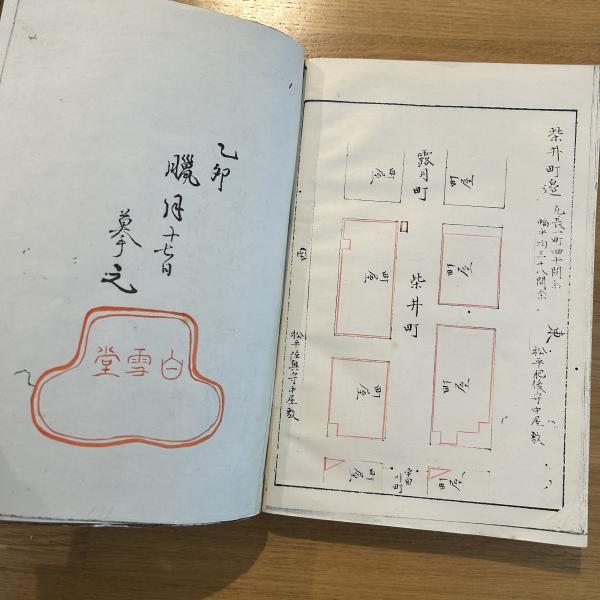 乙卯
臘月十七日
摹之
白雪堂
柴井町邊
凡長一町四十間余
幅平均三十八間余
東
松平肥後守中屋敷
町屋
町屋
町屋
町屋
露月町
柴井町
宇田川町
町屋
町屋
町屋
町屋
西
松平陸奥守中屋敷